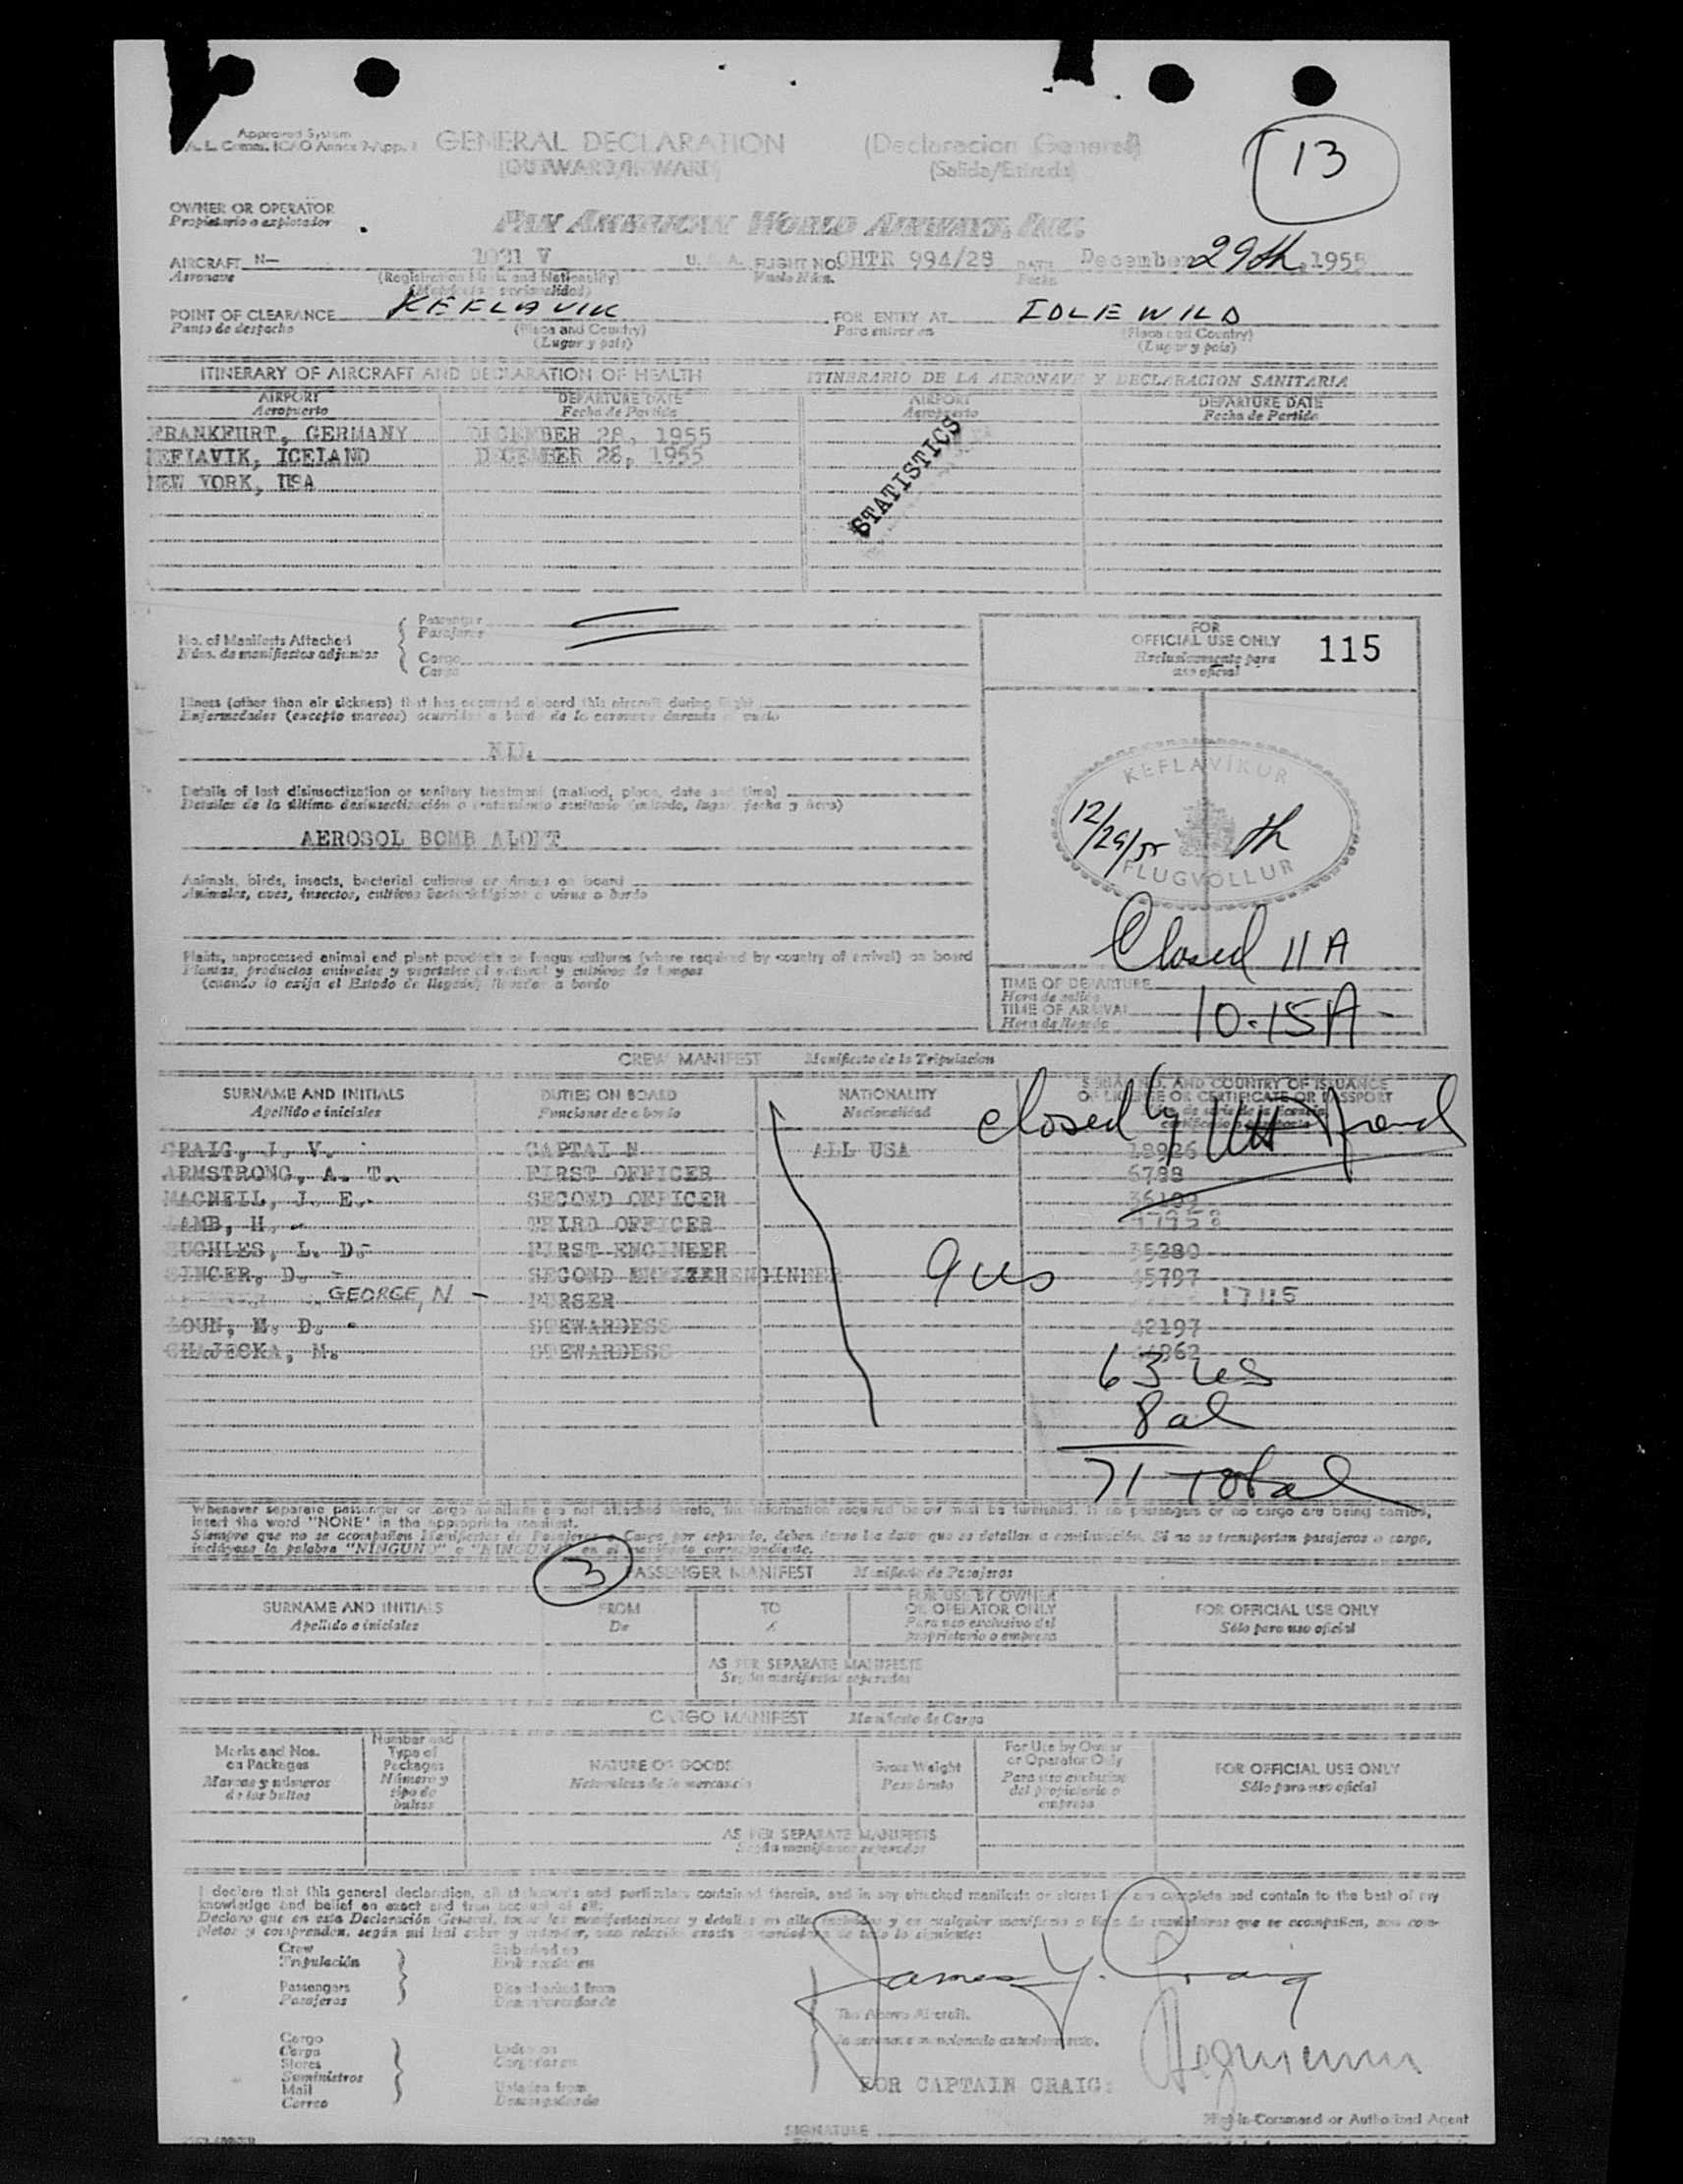 Approved System
A. L. Comm. ICAO Annex 9-App. 1
GENERAL DECLARATION (Declaracion General)
(OUTWARD/INWARD) (Salida/Entrada)
13
OWNER OR OPERATOR
Propietario o explotador
PAN AMERICAN WORLD AIRWAYS, INC.
AIRCRAFT N- 1031 V U. S. A. FLIGHT NO. CHTR 994/28 DATE December 29th, 1955
Aeronave (Registration Marks and Nationality) Vuelo Núm. Fecha
POINT OF CLEARANCE KEFLAVIK FOR ENTRY AT IDLEWILD
Punto de despacho (Place and Country) Para entrar en (Place and Country)
(Lugar y país) (Lugar y país)
ITINERARY OF AIRCRAFT AND DECLARATION OF HEALTH ITINERARIO DE LA AERONAVE Y DECLARACION SANITARIA
AIRPORT DEPARTURE DATE AIRPORT DEPARTURE DATE
Aeropuerto Fecha de Partida Aeropuerto Fecha de Partida
FRANKFURT, GERMANY DECEMBER 28, 1955
KEFLAVIK, ICELAND DECEMBER 28, 1955
NEW YORK, USA
STATISTICS
No. of Manifests Attached
Núm. de manifiestos adjuntos
Passenger
Pasajeros
Cargo
Carga
FOR
OFFICIAL USE ONLY 115
Exclusivamente para
uso oficial
Illness (other than air sickness) that has occurred aboard this aircraft during flight
Enfermedades (excepto mareos) ocurridas a bordo de la aeronave durante el vuelo
NIL
Details of last disinsectization or sanitary treatment (method, place, date and time)
Detalles de la última desinsectización o tratamiento sanitario (método, lugar, fecha y hora)
AEROSOL BOMB ALOFT
KEFLAVIKUR
12/29/55
FLUGVOLLUR
Animals, birds, insects, bacterial cultures or viruses on board
Animales, aves, insectos, cultivos bacteriológicos o virus a bordo
Closed 11 A
Plants, unprocessed animal and plant products or fungus cultures (where required by country of arrival) on board
Plantas, productos animales y vegetales al natural y cultivos de hongos
(cuando lo exija el Estado de llegada) llevados a bordo
TIME OF DEPARTURE
Hora de salida
TIME OF ARRIVAL 10:15A
Hora de llegada
CREW MANIFEST Manifiesto de la Tripulacion
SURNAME AND INITIALS DUTIES ON BOARD NATIONALITY SERIAL NO. AND COUNTRY OF ISSUANCE
Apellido e iniciales Funciones de a bordo Nacionalidad OF LICENSE OR CERTIFICATE OR PASSPORT
closed by
CRAIG, J. V. CAPTAIN ALL USA 18926
ARMSTRONG, A. T. FIRST OFFICER 6788
MACNEILL, J. E. SECOND OFFICER
LAMB, H. THIRD OFFICER
HUGHLES, L. D. FIRST ENGINEER 35280
SINGER, D. SECOND ENGINEER 45797
GEORGE, N PURSER 17115
9 us
LOUD, M. D. STEWARDESS 42197
CHAJECKA, M. STEWARDESS
63 us
8 al
71 Total
Whenever separate passenger or cargo manifests are not attached hereto, the information required below must be furnished. If no passengers or no cargo are being carried,
insert the word "NONE" in the appropriate manifest.
Siempre que no se acompañen Manifiestos de Pasajeros o Carga por separado, deben darse los datos que se detallan a continuación. Si no se transportan pasajeros o carga,
inclúyase la palabra "NINGUNO" o "NINGUNA" en el manifiesto correspondiente.
3 PASSENGER MANIFEST Manifiesto de Pasajeros
SURNAME AND INITIALS FROM TO FOR USE BY OWNER OR OPERATOR ONLY FOR OFFICIAL USE ONLY
Apellido e iniciales De A Para uso exclusivo del propietario o empresa Sólo para uso oficial
AS PER SEPARATE MANIFESTS
Según manifiestos separados
CARGO MANIFEST Manifiesto de Carga
Marks and Nos. on Packages Number and Type of Packages NATURE OF GOODS Gross Weight For Use by Owner or Operator Only FOR OFFICIAL USE ONLY
Marcas y números de los bultos Número y tipo de bultos Naturaleza de la mercancía Peso bruto Para uso exclusivo del propietario o empresa Sólo para uso oficial
AS PER SEPARATE MANIFESTS
Según manifiestos separados
I declare that this general declaration, all statements and particulars contained therein, and in any attached manifests or stores list are complete and contain to the best of my
knowledge and belief an exact and true account of all:
Declaro que en esta Declaración General, todas las manifestaciones y detalles en ella incluidos y en cualquier manifiesto o lista de suministros que se acompañen, son com-
pletos y comprenden, según mi leal saber y entender, una relación exacta y verdadera de todo lo siguiente:
Crew Embarked on
Tripulación Embarcados en
Passengers Disembarked from
Pasajeros Desembarcados de
James V. Craig
The Above Aircraft.
la aeronave mencionada anteriormente.
Cargo
Carga
Stores
Suministros
Mail
Correo
Laden on
Cargados en
Unladen from
Descargados de
FOR CAPTAIN CRAIG:
Pilot-in-Command or Authorized Agent
SIGNATURE
Firma